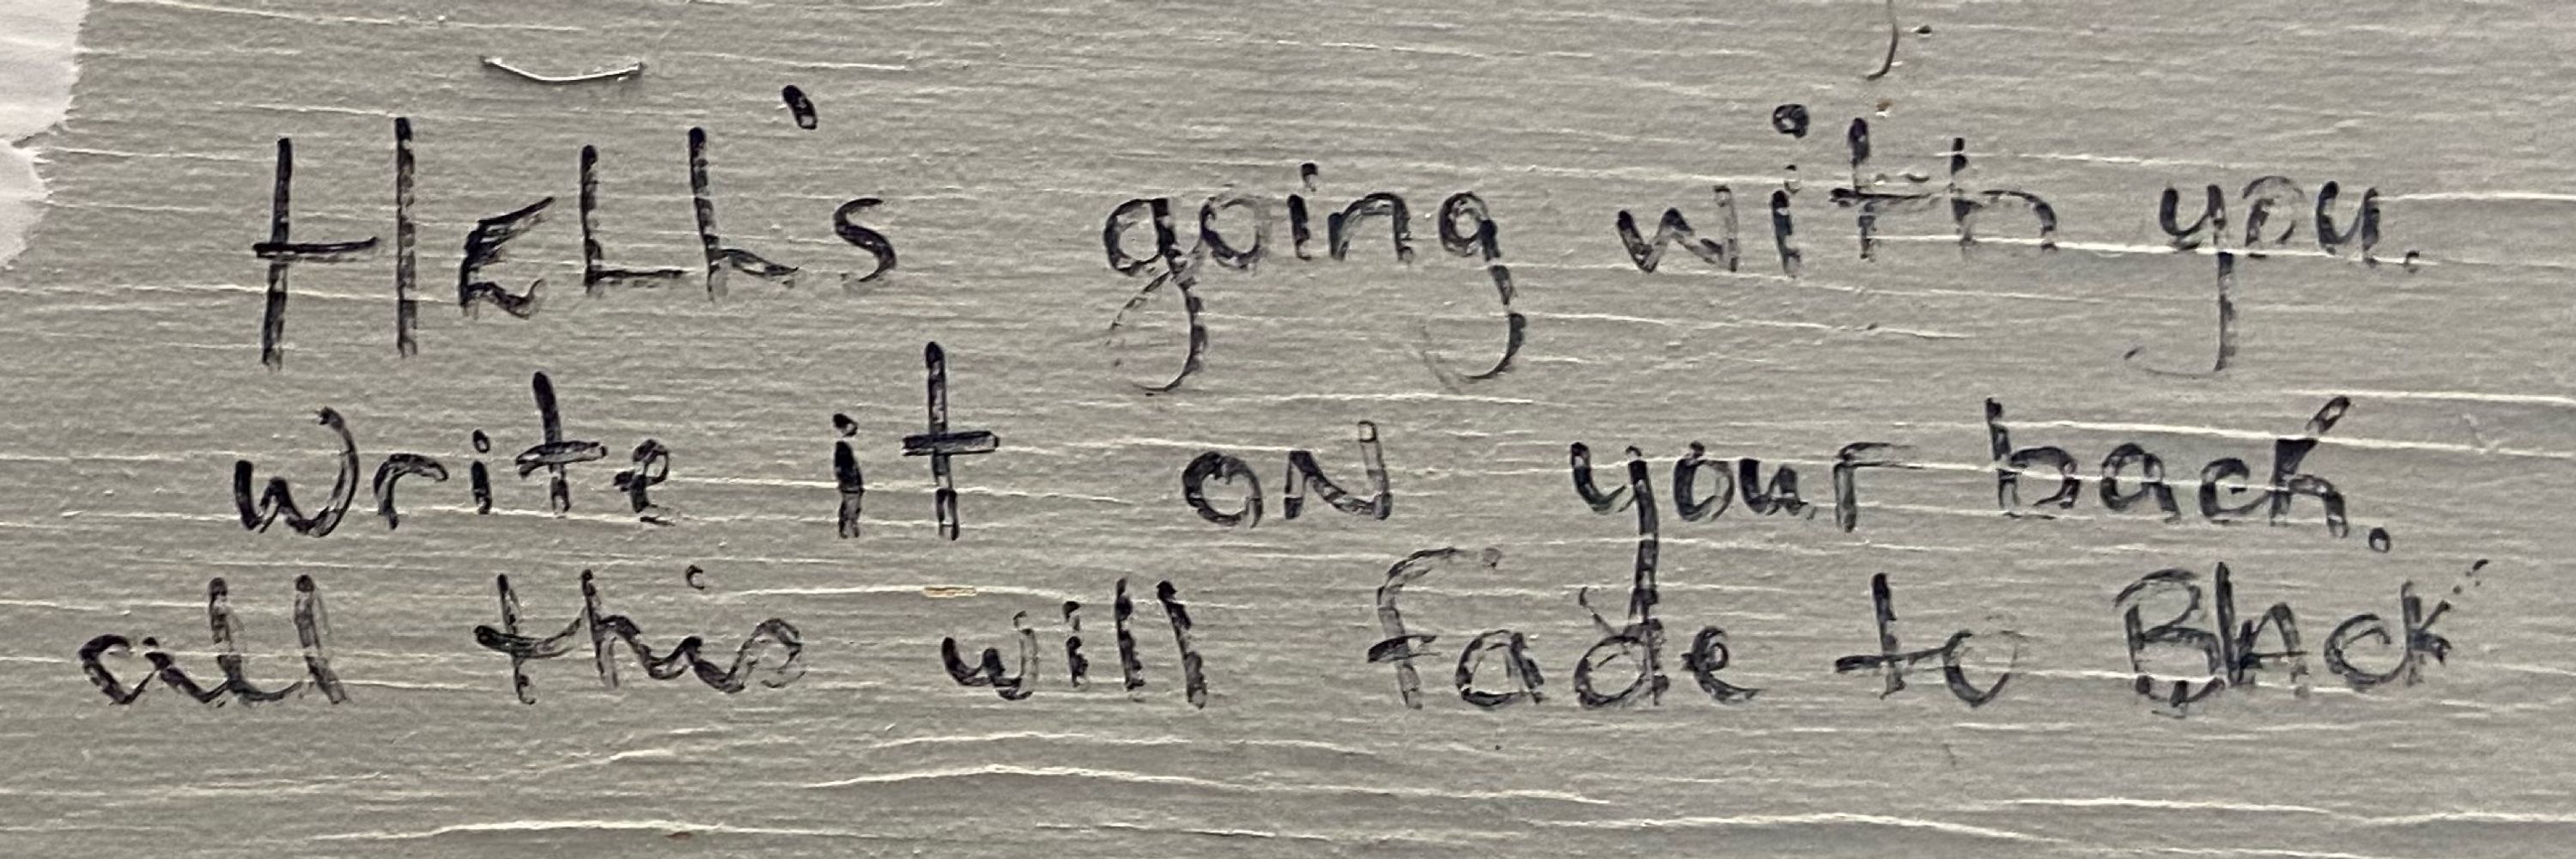 HELL's going with you.
write it on your back.
all this will fade to Black